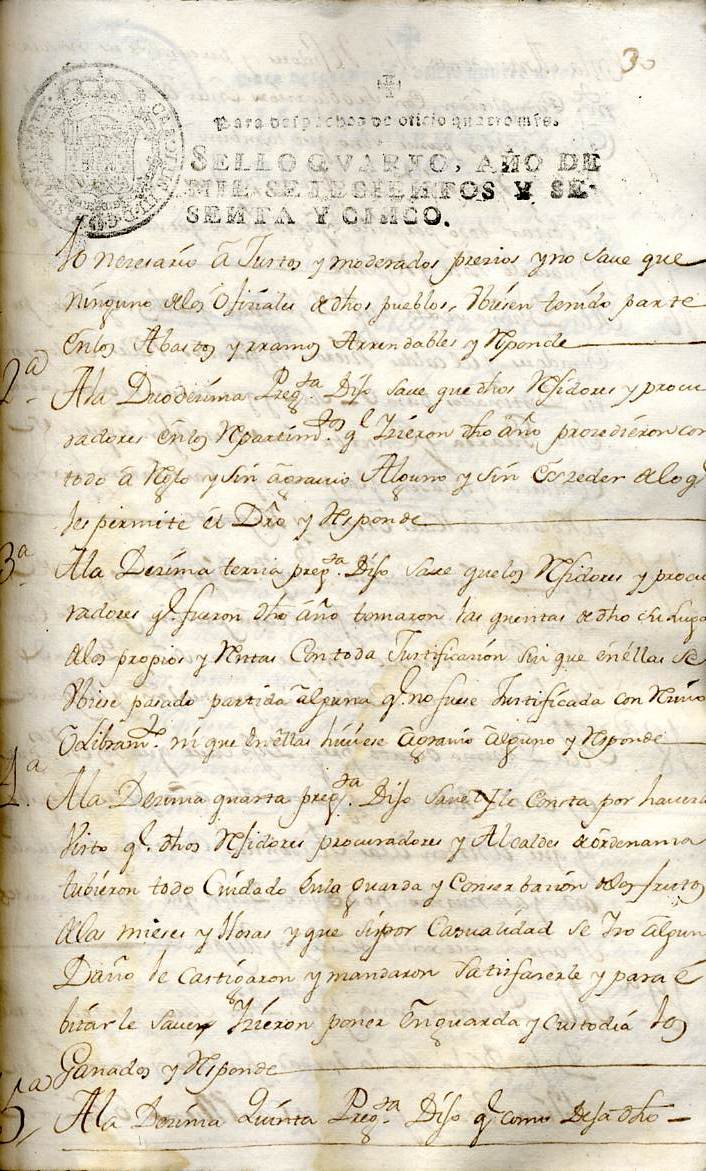 30
Para despachos de oficio quatro mrs.
SELLO QVARTO, AÑO DE
MIL SETECIENTOS Y SE-
SENTA Y CINCO.
lo necesario a Justos y moderados precios y no save que
ninguno de los Ofiziales de dhos pueblos, Ubiesen tenido parte
en los Abastos y rramos Arrendables y Rponde
2ª
A la Duodezima Pregta. Dijo save que dhos Rejidores y procu
radores en los Repartimtos. q^e hizieron dho año prozedieron con
todo a Reglo y sin agravio Alguno y sin Exzeder de lo q
les permite el Dro y Responde
3ª
A la Dezima terzia pregta. Dijo save que los Rejidores y procu
radores q^e. fueron dho año tomaron las quentas de dho
de los propios y Rentas Con toda Justificazion sin que en ellas se
Ubiese pasado partida alguna q^e. no fuese Justificada con Rezivo
O Libramto. ni que en ellas huviese agravio alguno y Responde
4ª
A la Dezima quarta pregta. Dijo save y le Consta por haverlo
Visto q^e. dhos Rejidores procuradores y Alcaldes de ordenanza
tubieron todo Cuidado en la guarda y Conserbazion de los frutos
de las mieses y y que si por Casualidad se izo algun
Daño le Castigaron y mandaron satisfazerle y para e
bitarle save hizieron poner en guarda y Custodia los
Ganados y Rsponde
5ª
A la Dezima Quinta Pregta. Dijo q^e como Deja dho